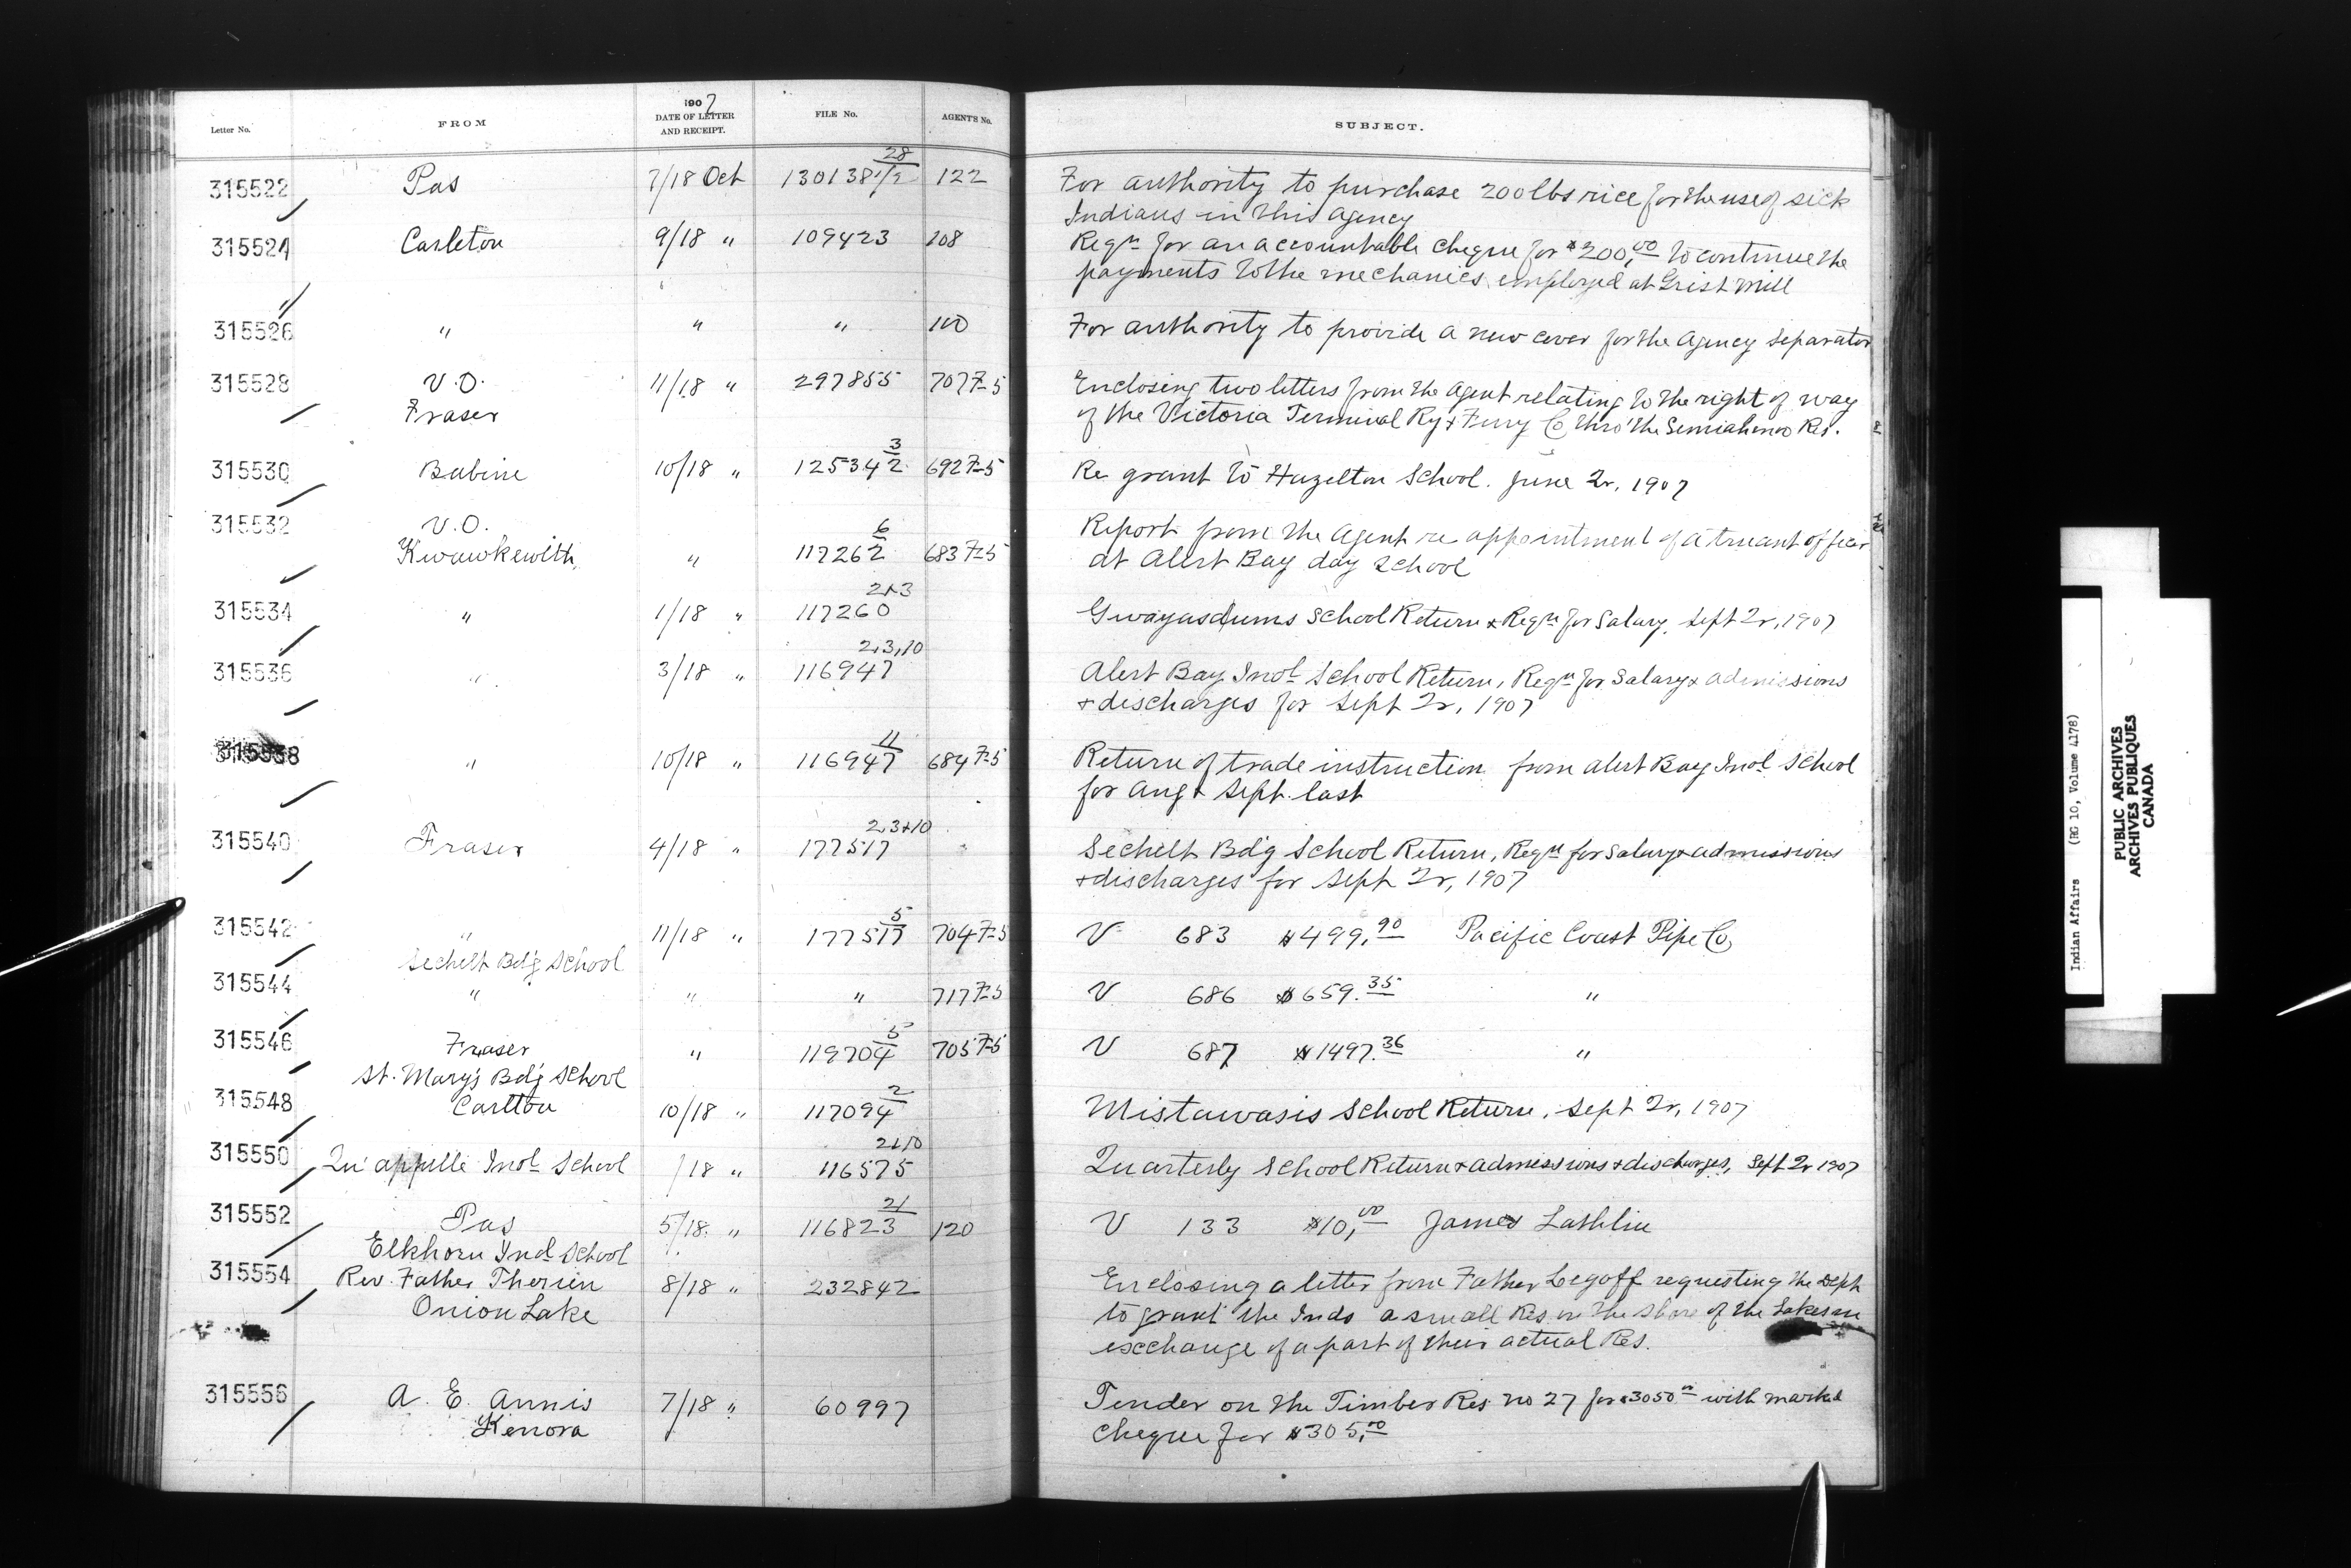 Letter No. FROM 1907 DATE OF LETTER AND RECEIPT. FILE No. AGENT'S No. SUBJECT.
28
315522 Pas 7/18 Oct 130138 1/2 122 For authority to purchase 200 lbs rice for the use of sick
Indians in this agency
315524 Carleton 9/18 " 109423 108 Reqn for an accountable cheque for $200,00 to continue the
payments to the mechanics employed at Grist Mill
315526 " " " 110 For authority to provide a new cover for the Agency Separator
315528 V.O. 11/18 " 297855 707 7-5 Enclosing two letters from the Agent relating to the right of way
Fraser of the Victoria Terminal Ry & Ferry Co thro' the Semiahmoo Res.
3
315530 Babine 10/18 " 125342 692 7-5 Re grant to Hazelton School. June 2r, 1907
315532 V.O. 6 Report from the Agent re appointment of a truant officer
Kwawkewith " 117262 683 7-5 at Alert Bay day School
2+3
315534 " 1/18 " 117260 Gwayasdums School Return & Reqn for Salary, Sept 2r, 1907
2,3,10
315536 " 3/18 " 116947 Alert Bay Indl School Return, Reqn for Salary & admissions
+ discharges for Sept 2r, 1907
11
315538 " 10/18 " 116947 684 7-5 Return of trade instruction from Alert Bay Indl School
for Aug & Sept. last
2,3+10
315540 Fraser 4/18 " 177517 Sechelt Bdg School Return, Reqn for Salary & admissions
+ discharges for Sept 2r, 1907
5
315542 " 11/18 " 177517 704 7-5 V 683 $499,90 Pacific Coast Pipe Co
Sechelt Bdg School
315544 " " " 717 7-5 V 686 $659.35 "
5
315546 Fraser " 119704 705 7-5 V 687 $1497.36 "
St. Mary's Bdg School
2
315548 Carlton 10/18 " 117094 Mistawasis School Return, Sept 2r, 1907
2+10
315550 Qu'appelle Indl School /18 " 116575 Quarterly School Return & admissions & discharges, Sept 2r 1907
21
315552 Pas 5/18 " 116823 120 V 133 $10,00 James Lathlin
Elkhorn Ind School
315554 Rev. Father Therien 8/18 " 232842 Enclosing a letter from Father Legoff requesting the Dept
Onion Lake to grant the Inds a small Res. on the shore of the Lakes in
exchange of a part of their actual Res.
315556 A. E. Annis 7/18 " 60997 Tender on the Timber Res. no 27 for $3050 00 with marked
Kenora cheque for $305,00
Indian Affairs (RG 10, Volume 4178)
PUBLIC ARCHIVES
ARCHIVES PUBLIQUES
CANADA